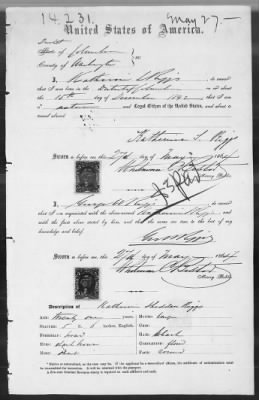 14.231.
May 27.
United States of America.
District
State of Columbia
County of Washington
I, Katherine S Riggs do swear
that I was born in the District of Columbia on or about
the 15th day of December 1842 that I am
a native and Loyal Citizen of the United States, and about to
travel abroad.
Katherine S. Riggs
Sworn to before me this 27th day of May 1864
Notary Public.
$3 paid
I, George W Riggs do swear
that I am acquainted with the above-named Katherine Riggs and
with the facts above stated by her, and that the same are true to the best of my
knowledge and belief.
Geo W Riggs
Sworn to before me this 27th day of May 1864
Notary Public.
Description of Katherine Shedden Riggs
Age: twenty one years
Mouth: large
Stature: 5 c 6 inches English.
Chin:
Forehead: broad
Hair: black
Eyes: dark brown
Complexion:
Nose: short
Face: round